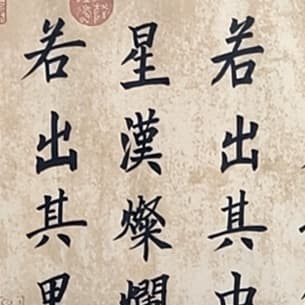 若出其中
星漢燦爛
若出其里